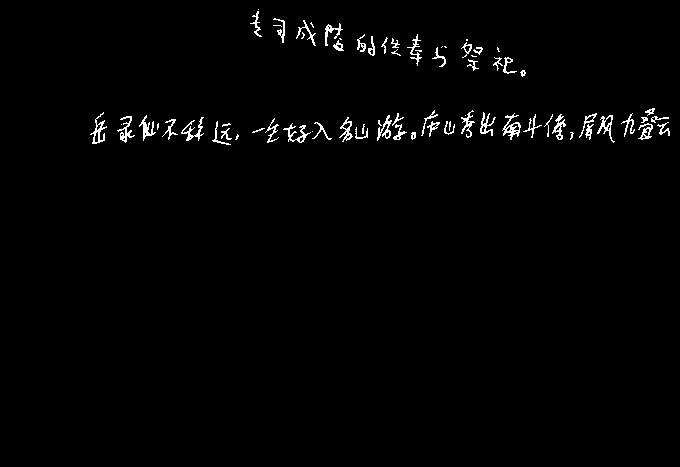 专司成陵的供奉与祭祀。
岳录仙不辞远，一生好入名山游。庐山秀出南斗傍，屏风九叠云